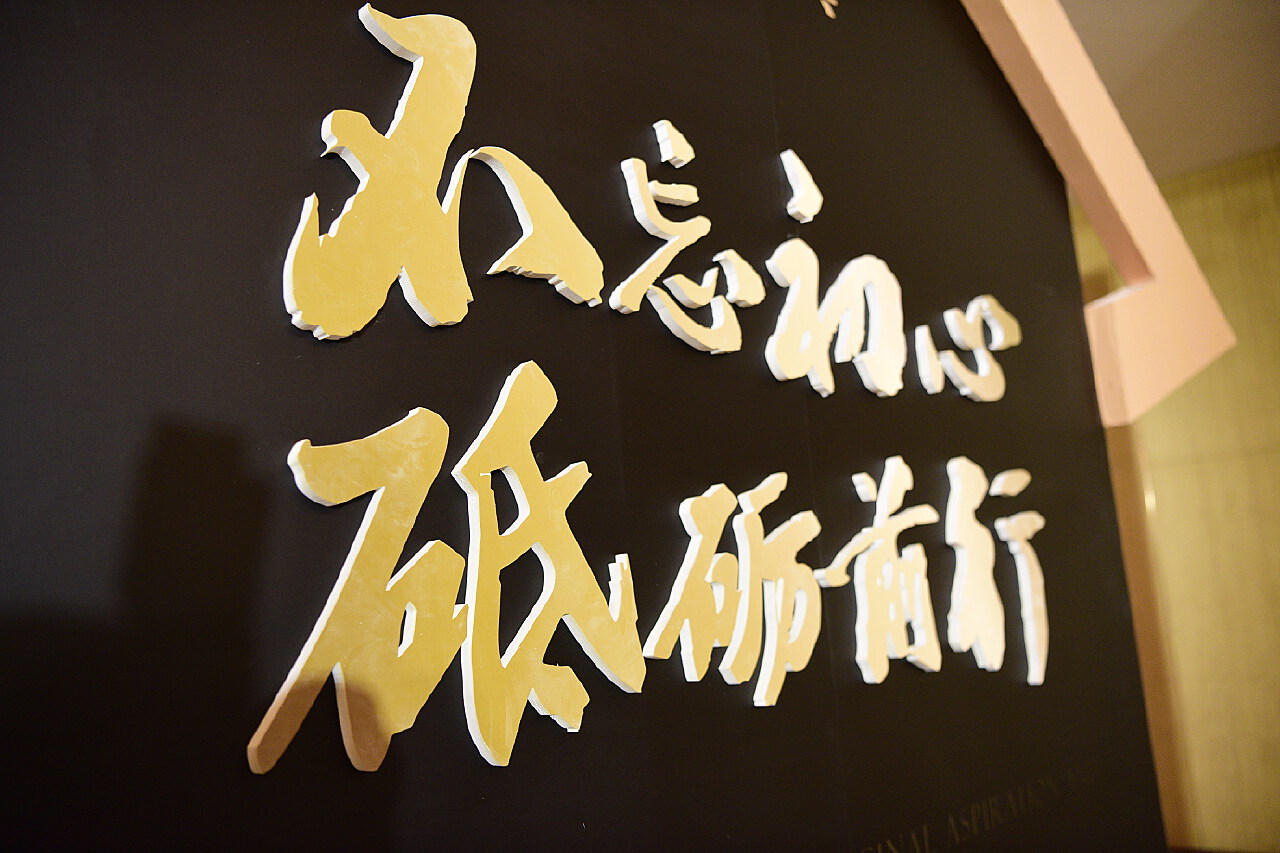 不忘初心
砥砺前行
ASPIRATION